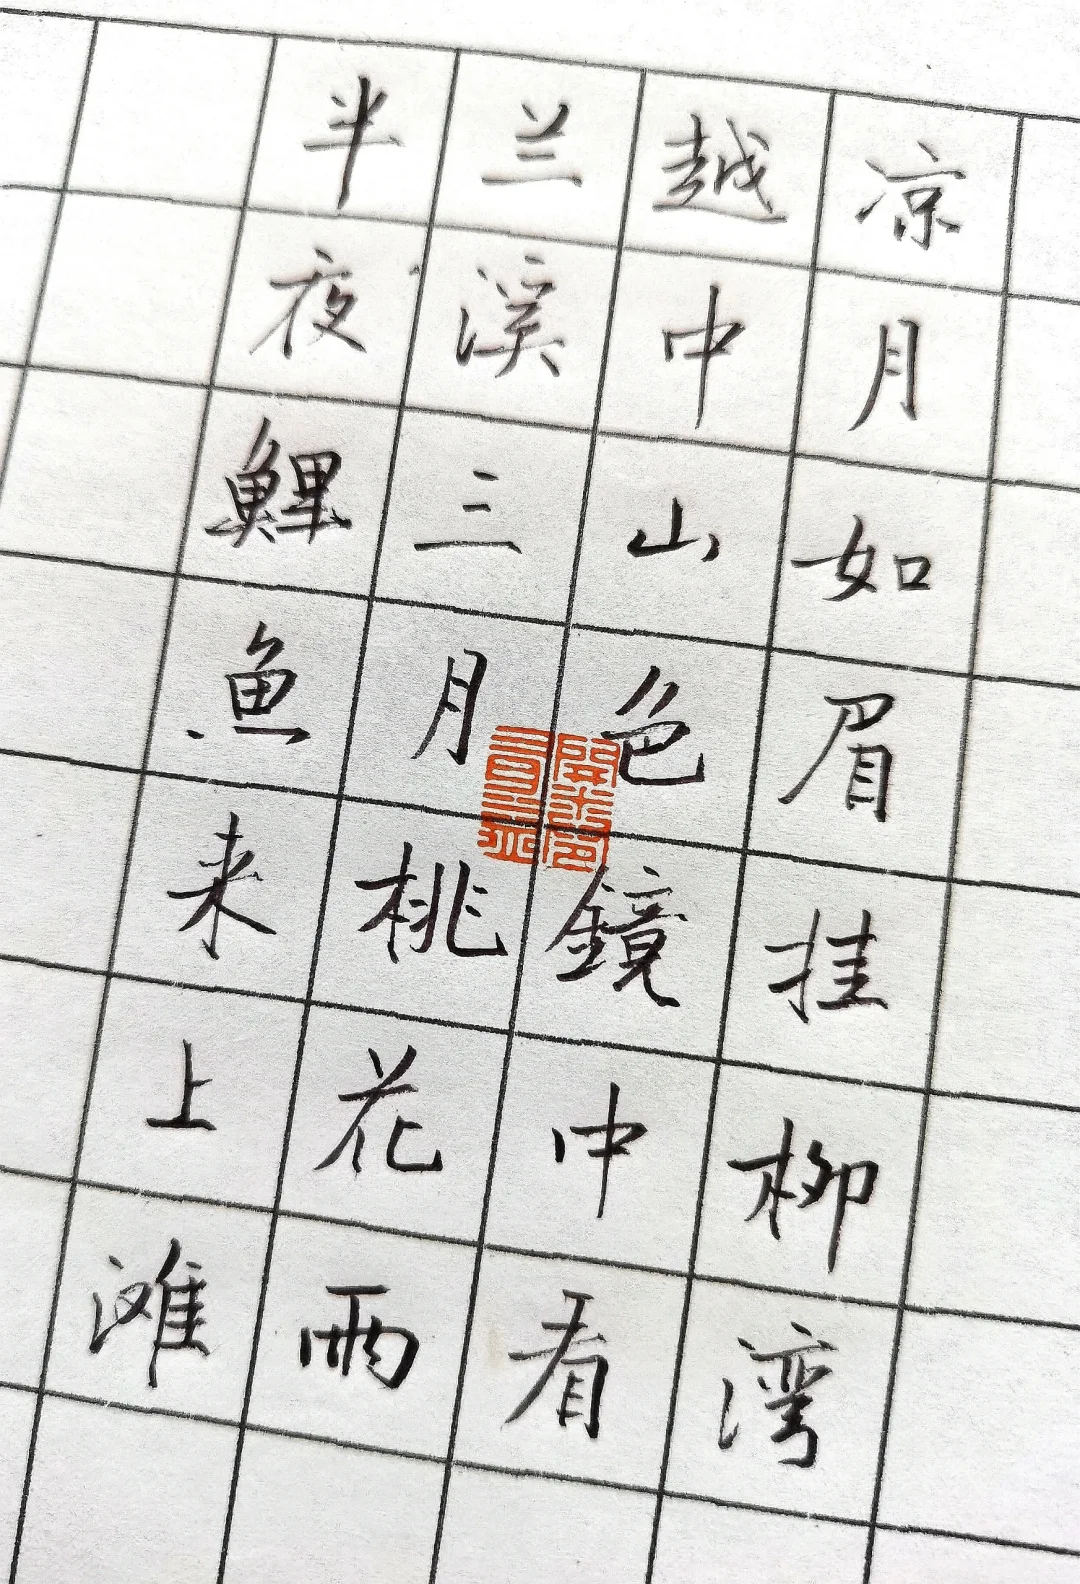 凉月如眉挂柳湾
越中山色鏡中看
兰溪三月桃花雨
半夜鲤魚来上滩